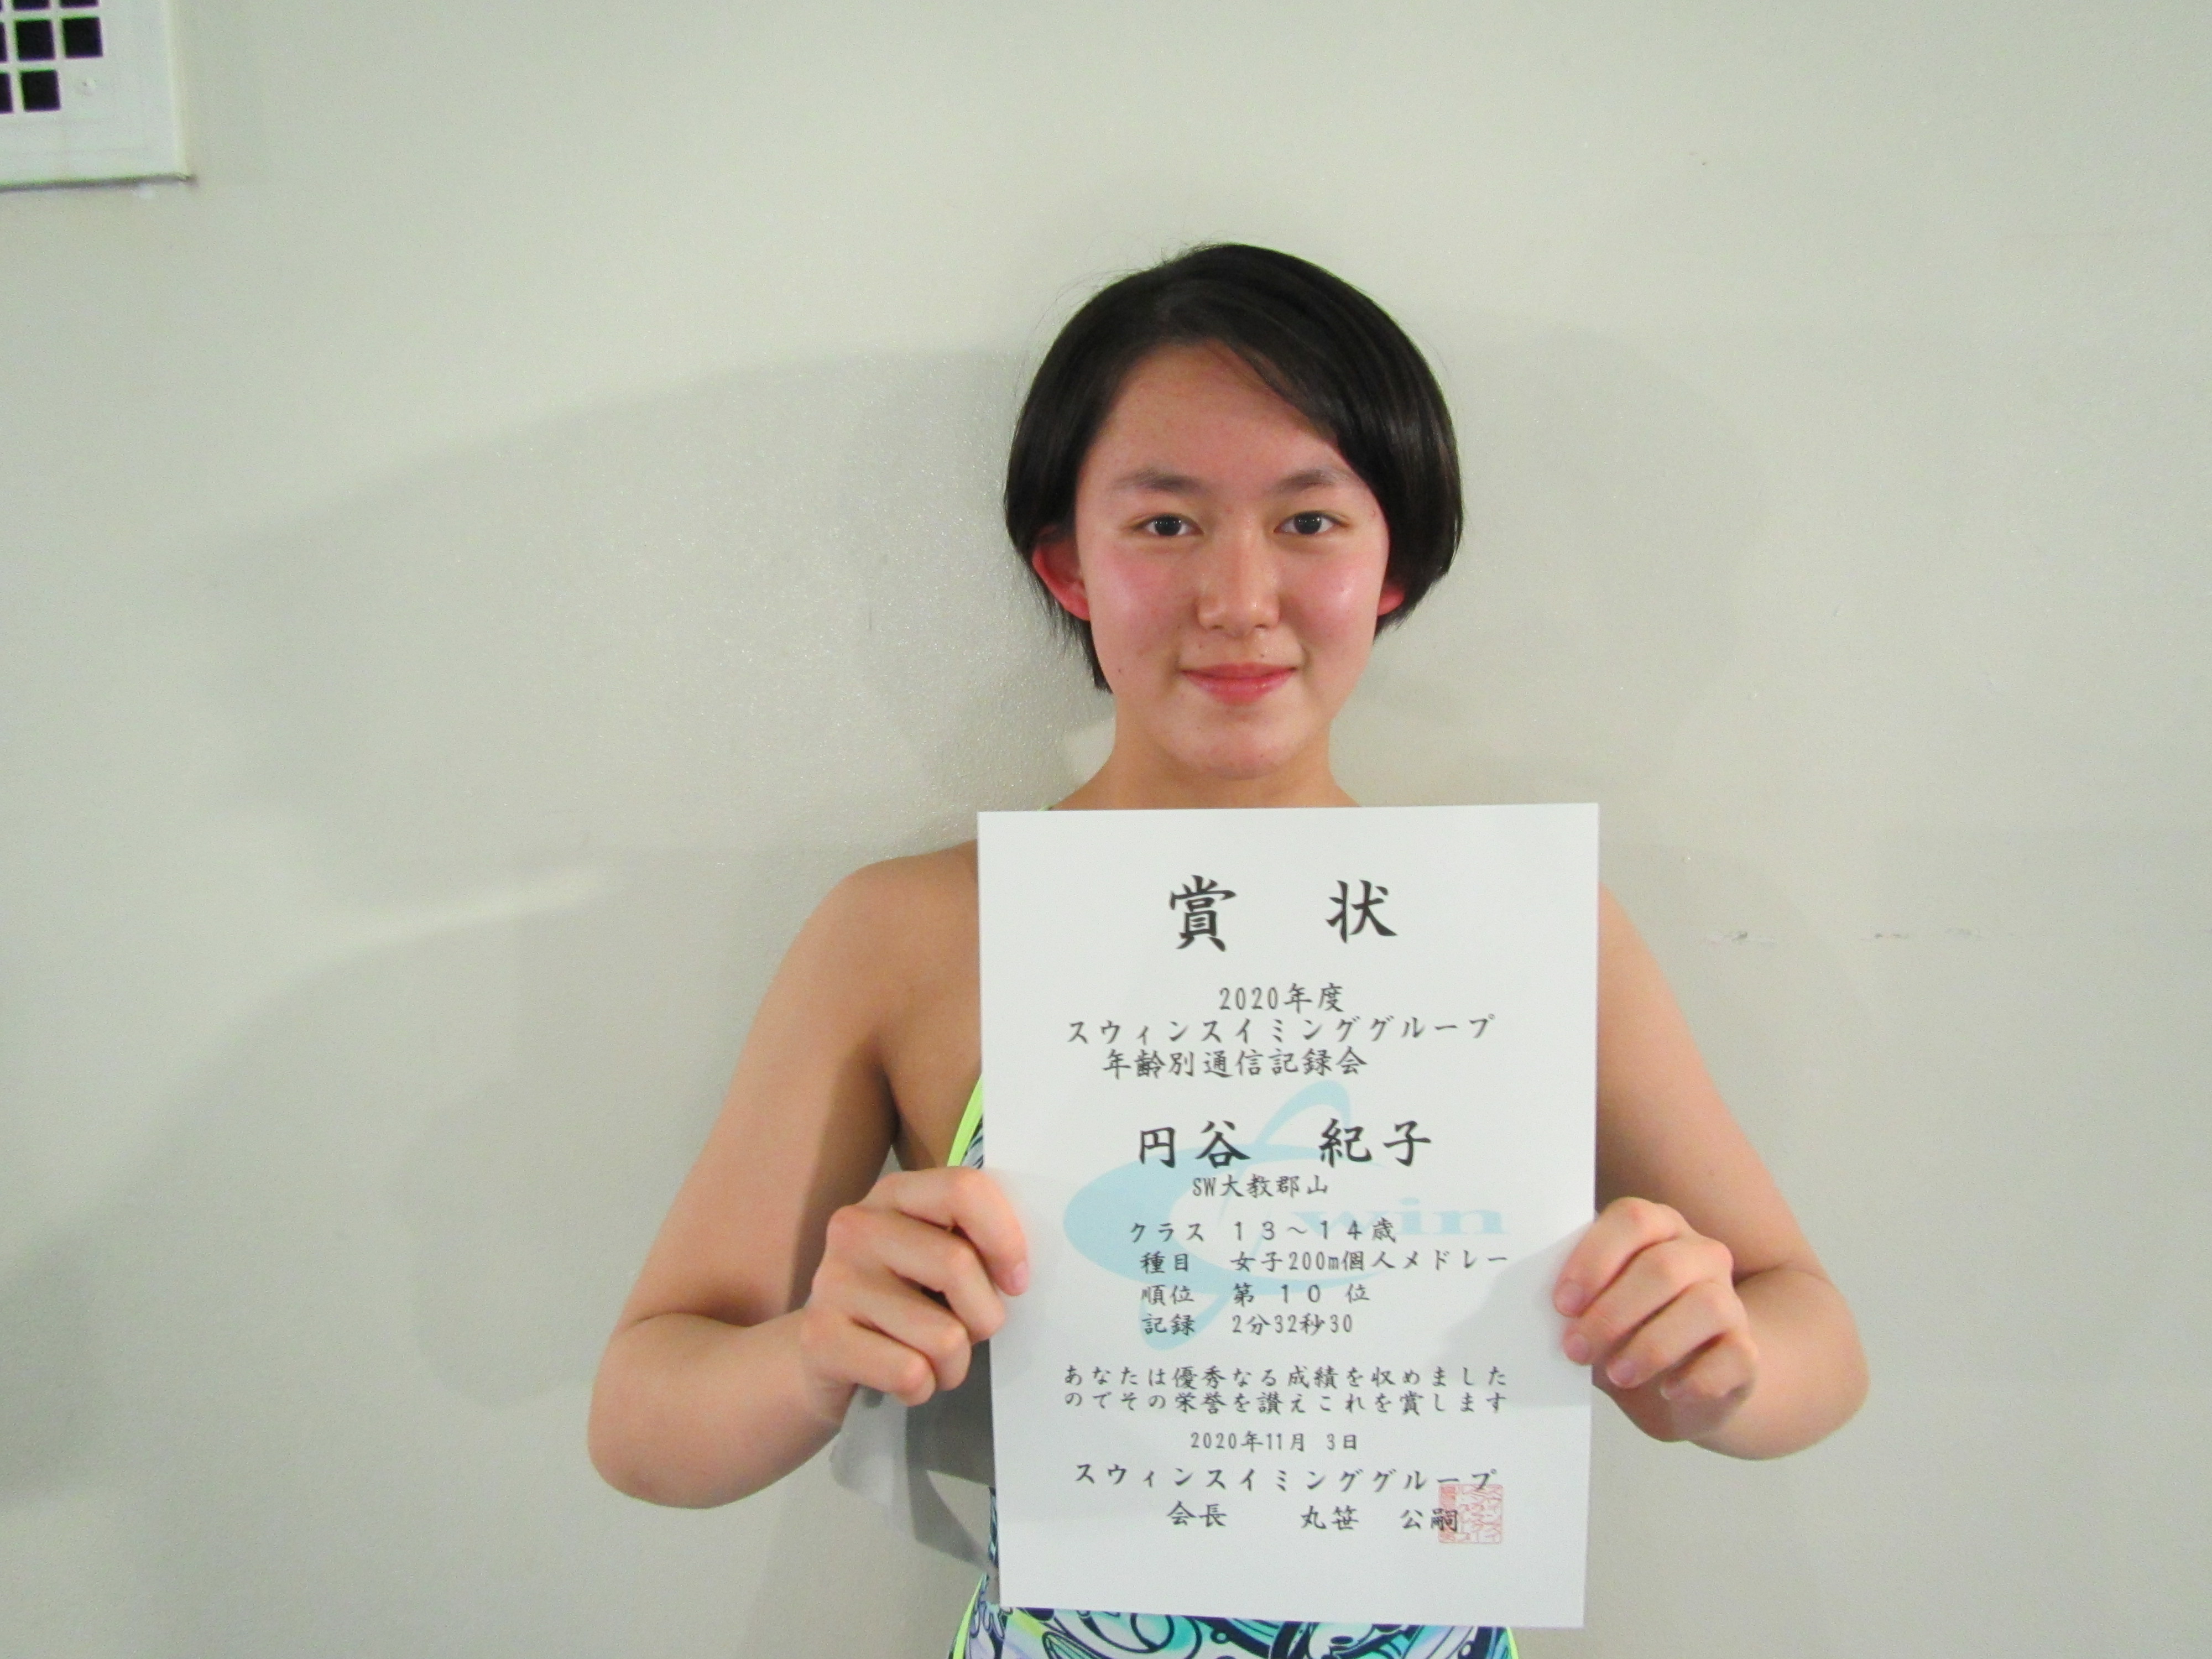 賞 状
2020年度
スウィンスイミンググループ
年齢別通信記録会
円谷 紀子
SW大教郡山
クラス 13~14歳
種目 女子200m個人メドレー
順位 第 10 位
記録 2分32秒30
あなたは優秀なる成績を収めました
のでその栄誉を讃えこれを賞します
2020年11月 3日
スウィンスイミンググループ
会長 丸笹 公嗣
win